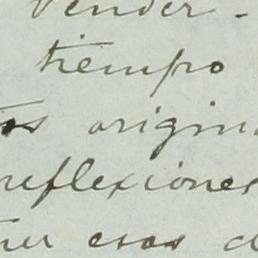 vender -
tiempo
tos origin
reflexiones
esas d